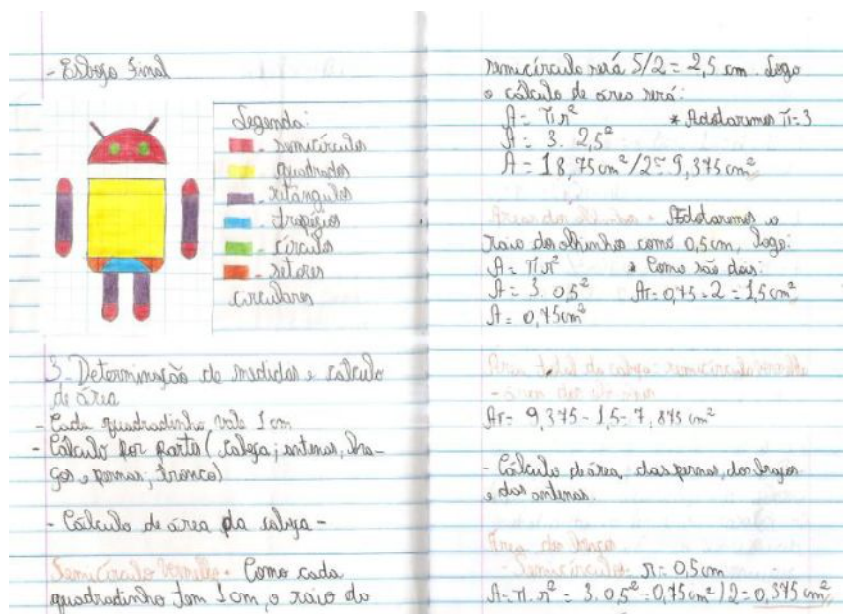 - Esboço Final
Legenda:
- semicírculos
- quadrados
- retângulos
- trapézios
- círculos
- setores
circulares
3 - Determinação de medidas e cálculo
de área
- Cada quadradinho vale 1 cm
- Cálculo por parte (cabeça; antenas, bra-
ços e pernas; tronco)
- Cálculo de área da cabeça -
Semicírculo Vermelho - Como cada
quadradinho tem 1 cm, o raio do
semicírculo será 5/2 = 2,5 cm. Logo
o cálculo de área será:
A = π r² * Adotaremos π = 3
A = 3 . 2,5²
A = 18,75 cm² / 2 = 9,375 cm²
- Adotaremos o
raio dos olhinhos como 0,5 cm, logo:
A = π . r² * Como são dois:
A = 3 . 0,5² Ar = 0,75 . 2 = 1,5 cm²
A = 0,75 cm²
Área total da cabeça: semicírculo vermelho
- área dos olhinhos
Ar = 9,375 - 1,5 = 7,875 cm²
- Cálculo de área das pernas, dos braços
e das antenas.
Área dos braços
- Semicírculo - r = 0,5 cm
A = π . r² = 3 . 0,5² = 0,75 cm² / 2 = 0,375 cm²